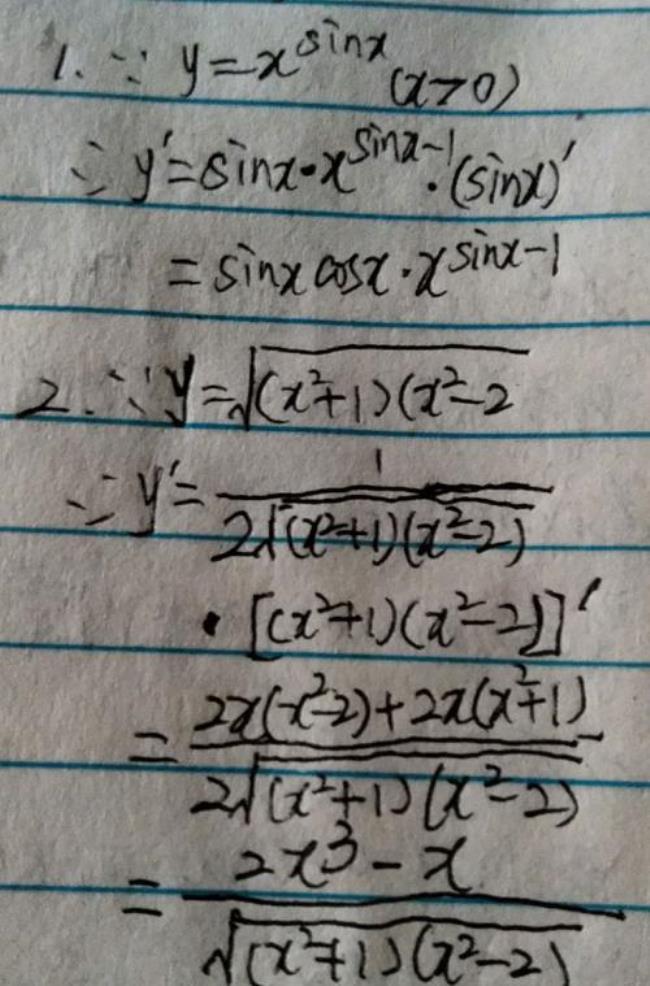 1. ∵ y=x^{sinx} (x>0)
∴ y'=sinx·x^{sinx-1}·(sinx)'
=sinx cosx·x^{sinx-1}
2. ∵ y=√(x²+1)(x²-2
∴ y'=\frac{1}{2√(x²+1)(x²-2)}
·[(x²+1)(x²-2)]'
=\frac{2x(x²-2)+2x(x²+1)}{2√(x²+1)(x²-2)}
=\frac{2x³-x}{√(x²+1)(x²-2)}